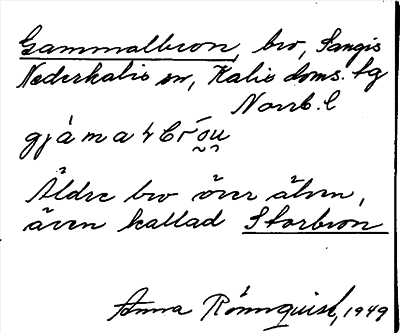 Gammalbron, bro, Sangis
Nederkalix sn, Kalix doms. tg
Norrb. l
gjáma
Äldre bro över älven,
även kallad Storbron
Anna Rönnquist, 1949